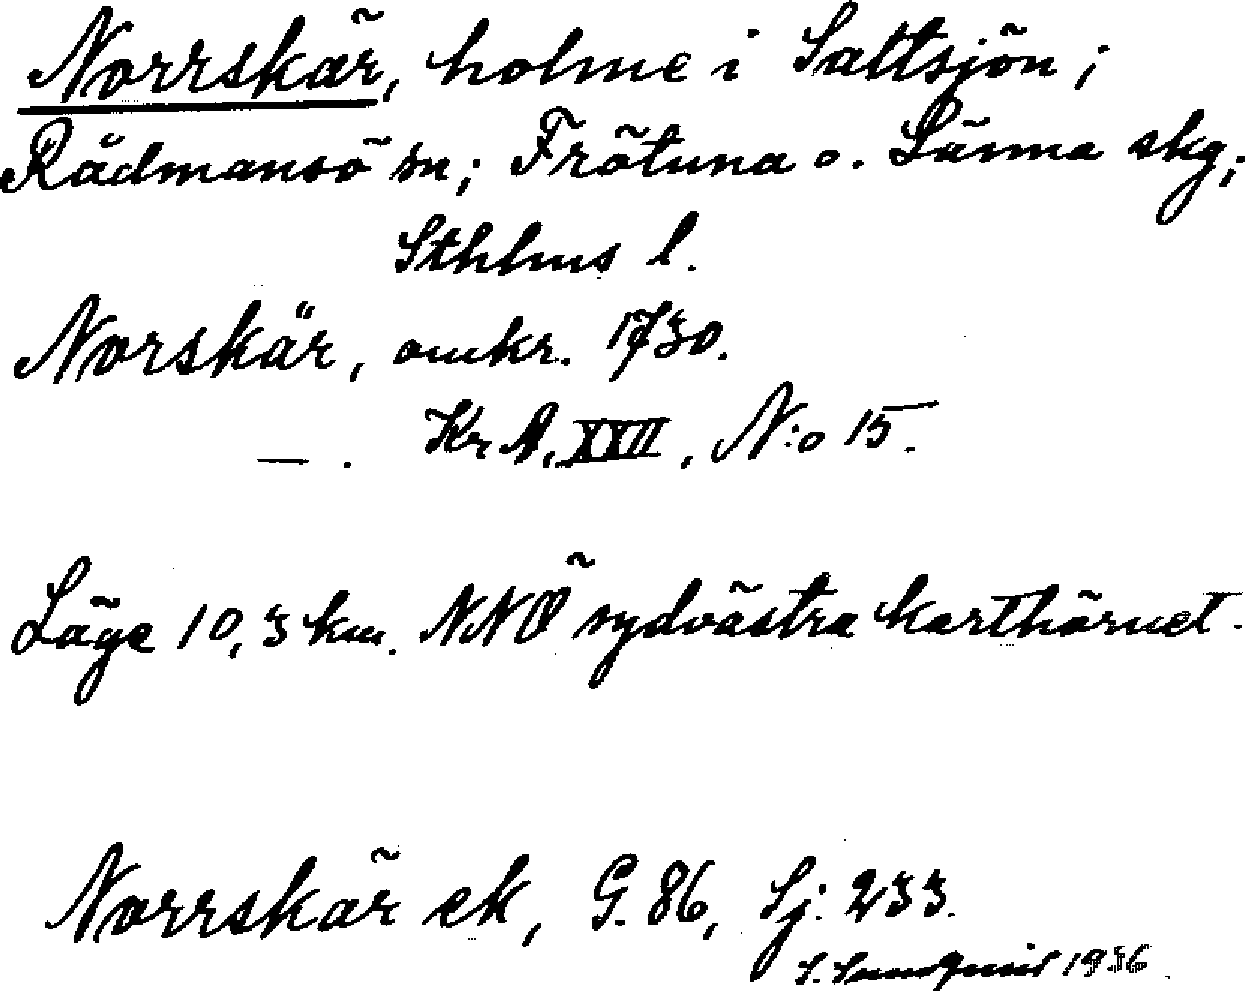 Norrskär, holme i Saltsjön;
Rådmansö sn; Frötuna o. Länna skg;
Sthlms l.
Norskär, omkr. 1730.
—. KrA, XXII, N:o 15.
Läge 10,3 km. NNÖ sydvästra karthörnet.
Norrskär ek, G. 86, Sj. 233.
S. Sundquist 1936.